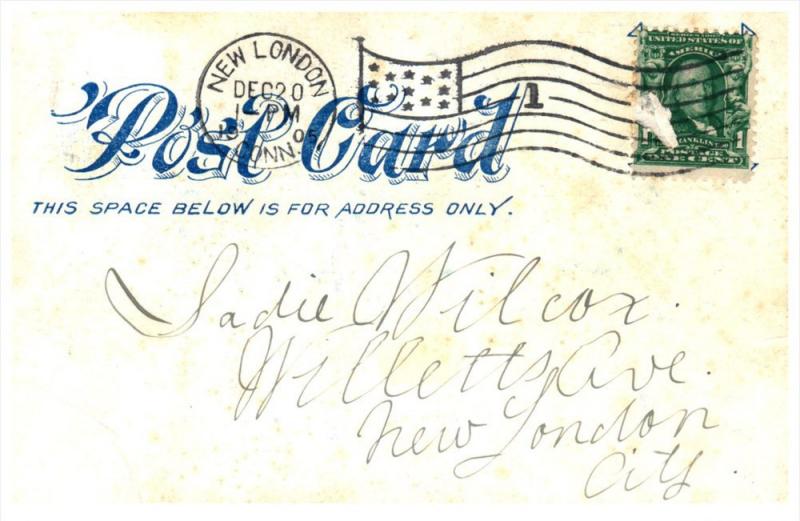 NEW LONDON
DEC 20
PM
1905
CONN.
1
SERIES 1902
UNITED STATES OF
AMERICA
FRANKLIN
1 1
ONE CENT
Post Card
THIS SPACE BELOW IS FOR ADDRESS ONLY.
Sadie Wilcox.
Willetts Ave.
New London
City